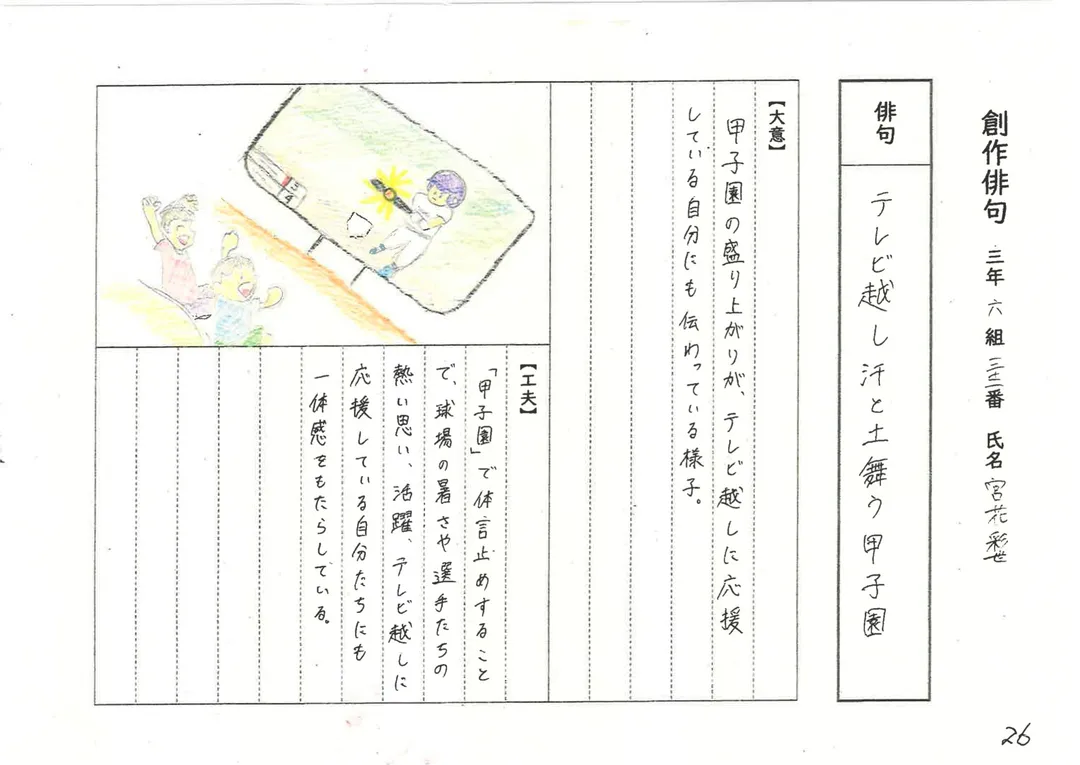 創作俳句 三年 六 組 三十三番 氏名 宮花 彩世
俳句
テレビ越し汗と土舞う甲子園
【大意】
甲子園の盛り上がりが、テレビ越しに応援
している自分にも伝わっている様子。
【工夫】
「甲子園」で体言止めすること
で、球場の暑さや選手たちの
熱い思い、活躍、テレビ越しに
応援している自分たちにも
一体感をもたらしている。
3
4
26